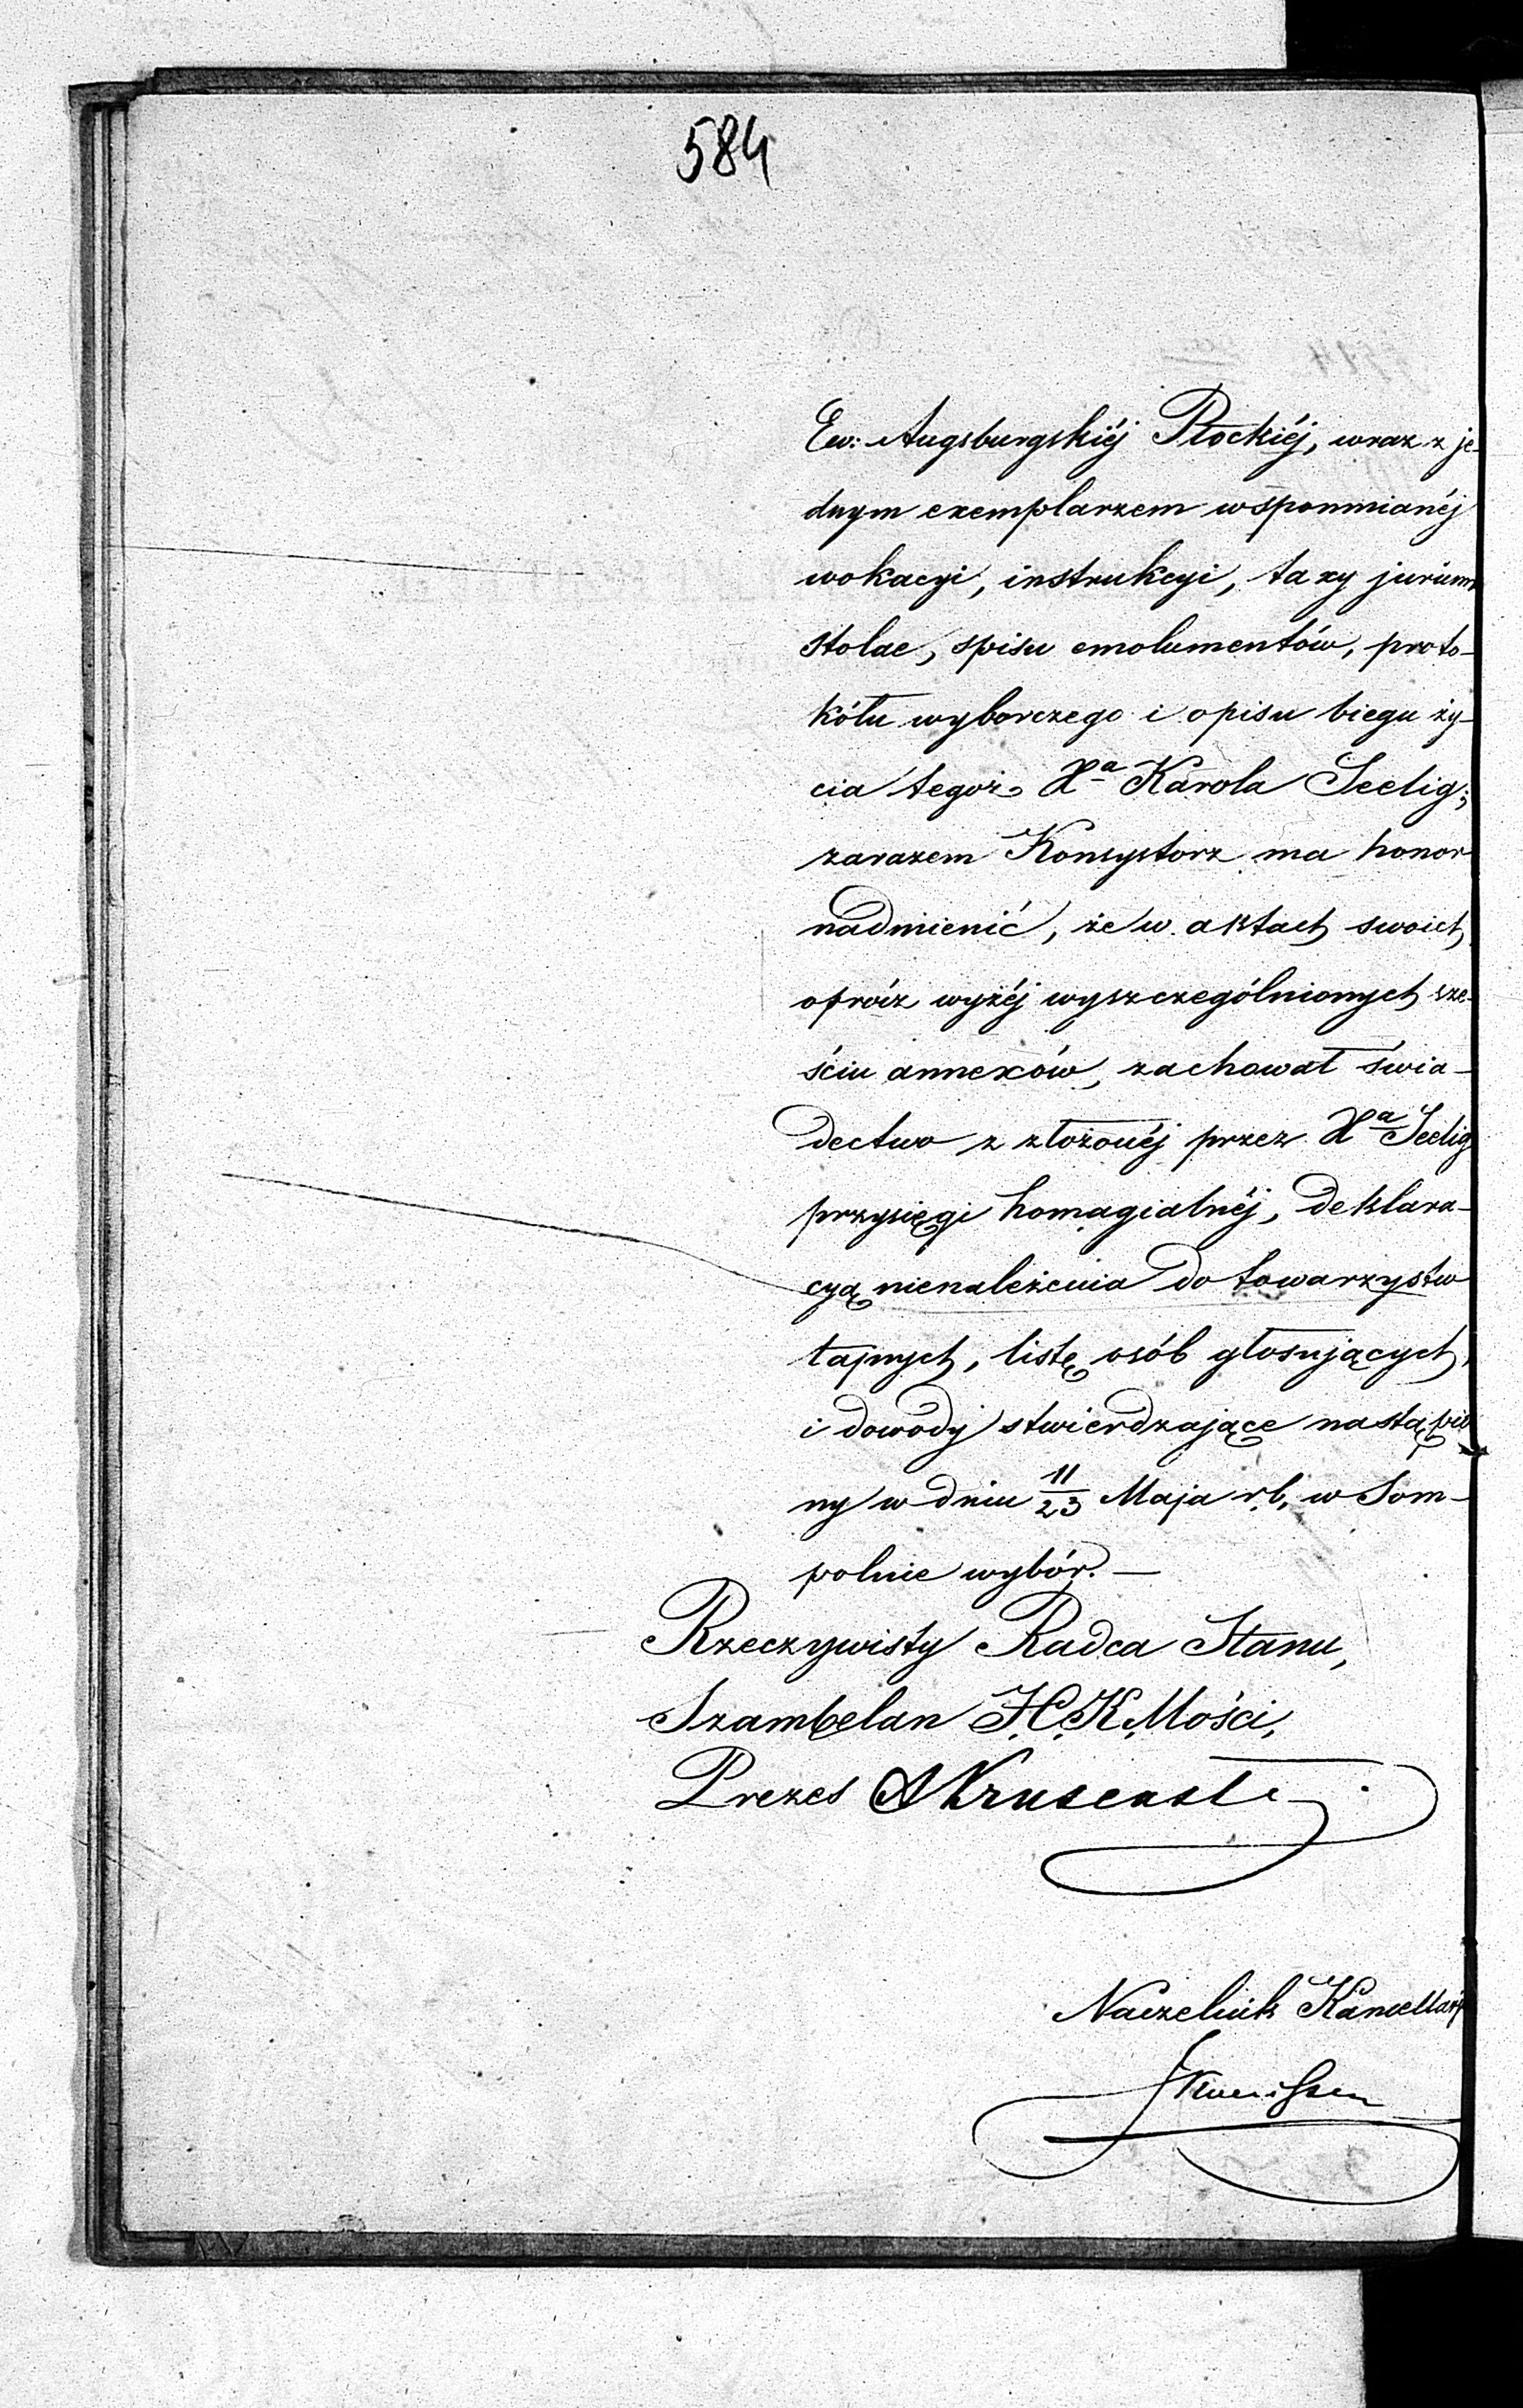 584
Ew: Augsburgskiéj Płockiéj, wraz z je-
dnym exemplarzem wspomnianéj
wokacyi, instrukcyi, taxy jurium
stolae, spisu emolumentów, proto-
kółu wyborczego i opisu biegu ży-
cia tegoż Xa Karola Seelig;
zarazem Konsystorz ma honor
nadmienić, że w aktach swoich
oprócz wyżéj wyszczególnionych sze-
ściu annexów, zachował świa-
dectwo z złożonéj przez Xa Seelig
przysięgi homagialnéj, deklara-
cyą nienależenia do towarzystw
tajnych, listę osób głosujących,
i dowody stwierdzające nastąpio
ny w dniu 11/23 Maja r.b. w Som-
polnie wybór. —
Rzeczywisty Radca Stanu,
Szambelan J.C.K.Mości,
Prezes
Naczelnik Kancellaryi